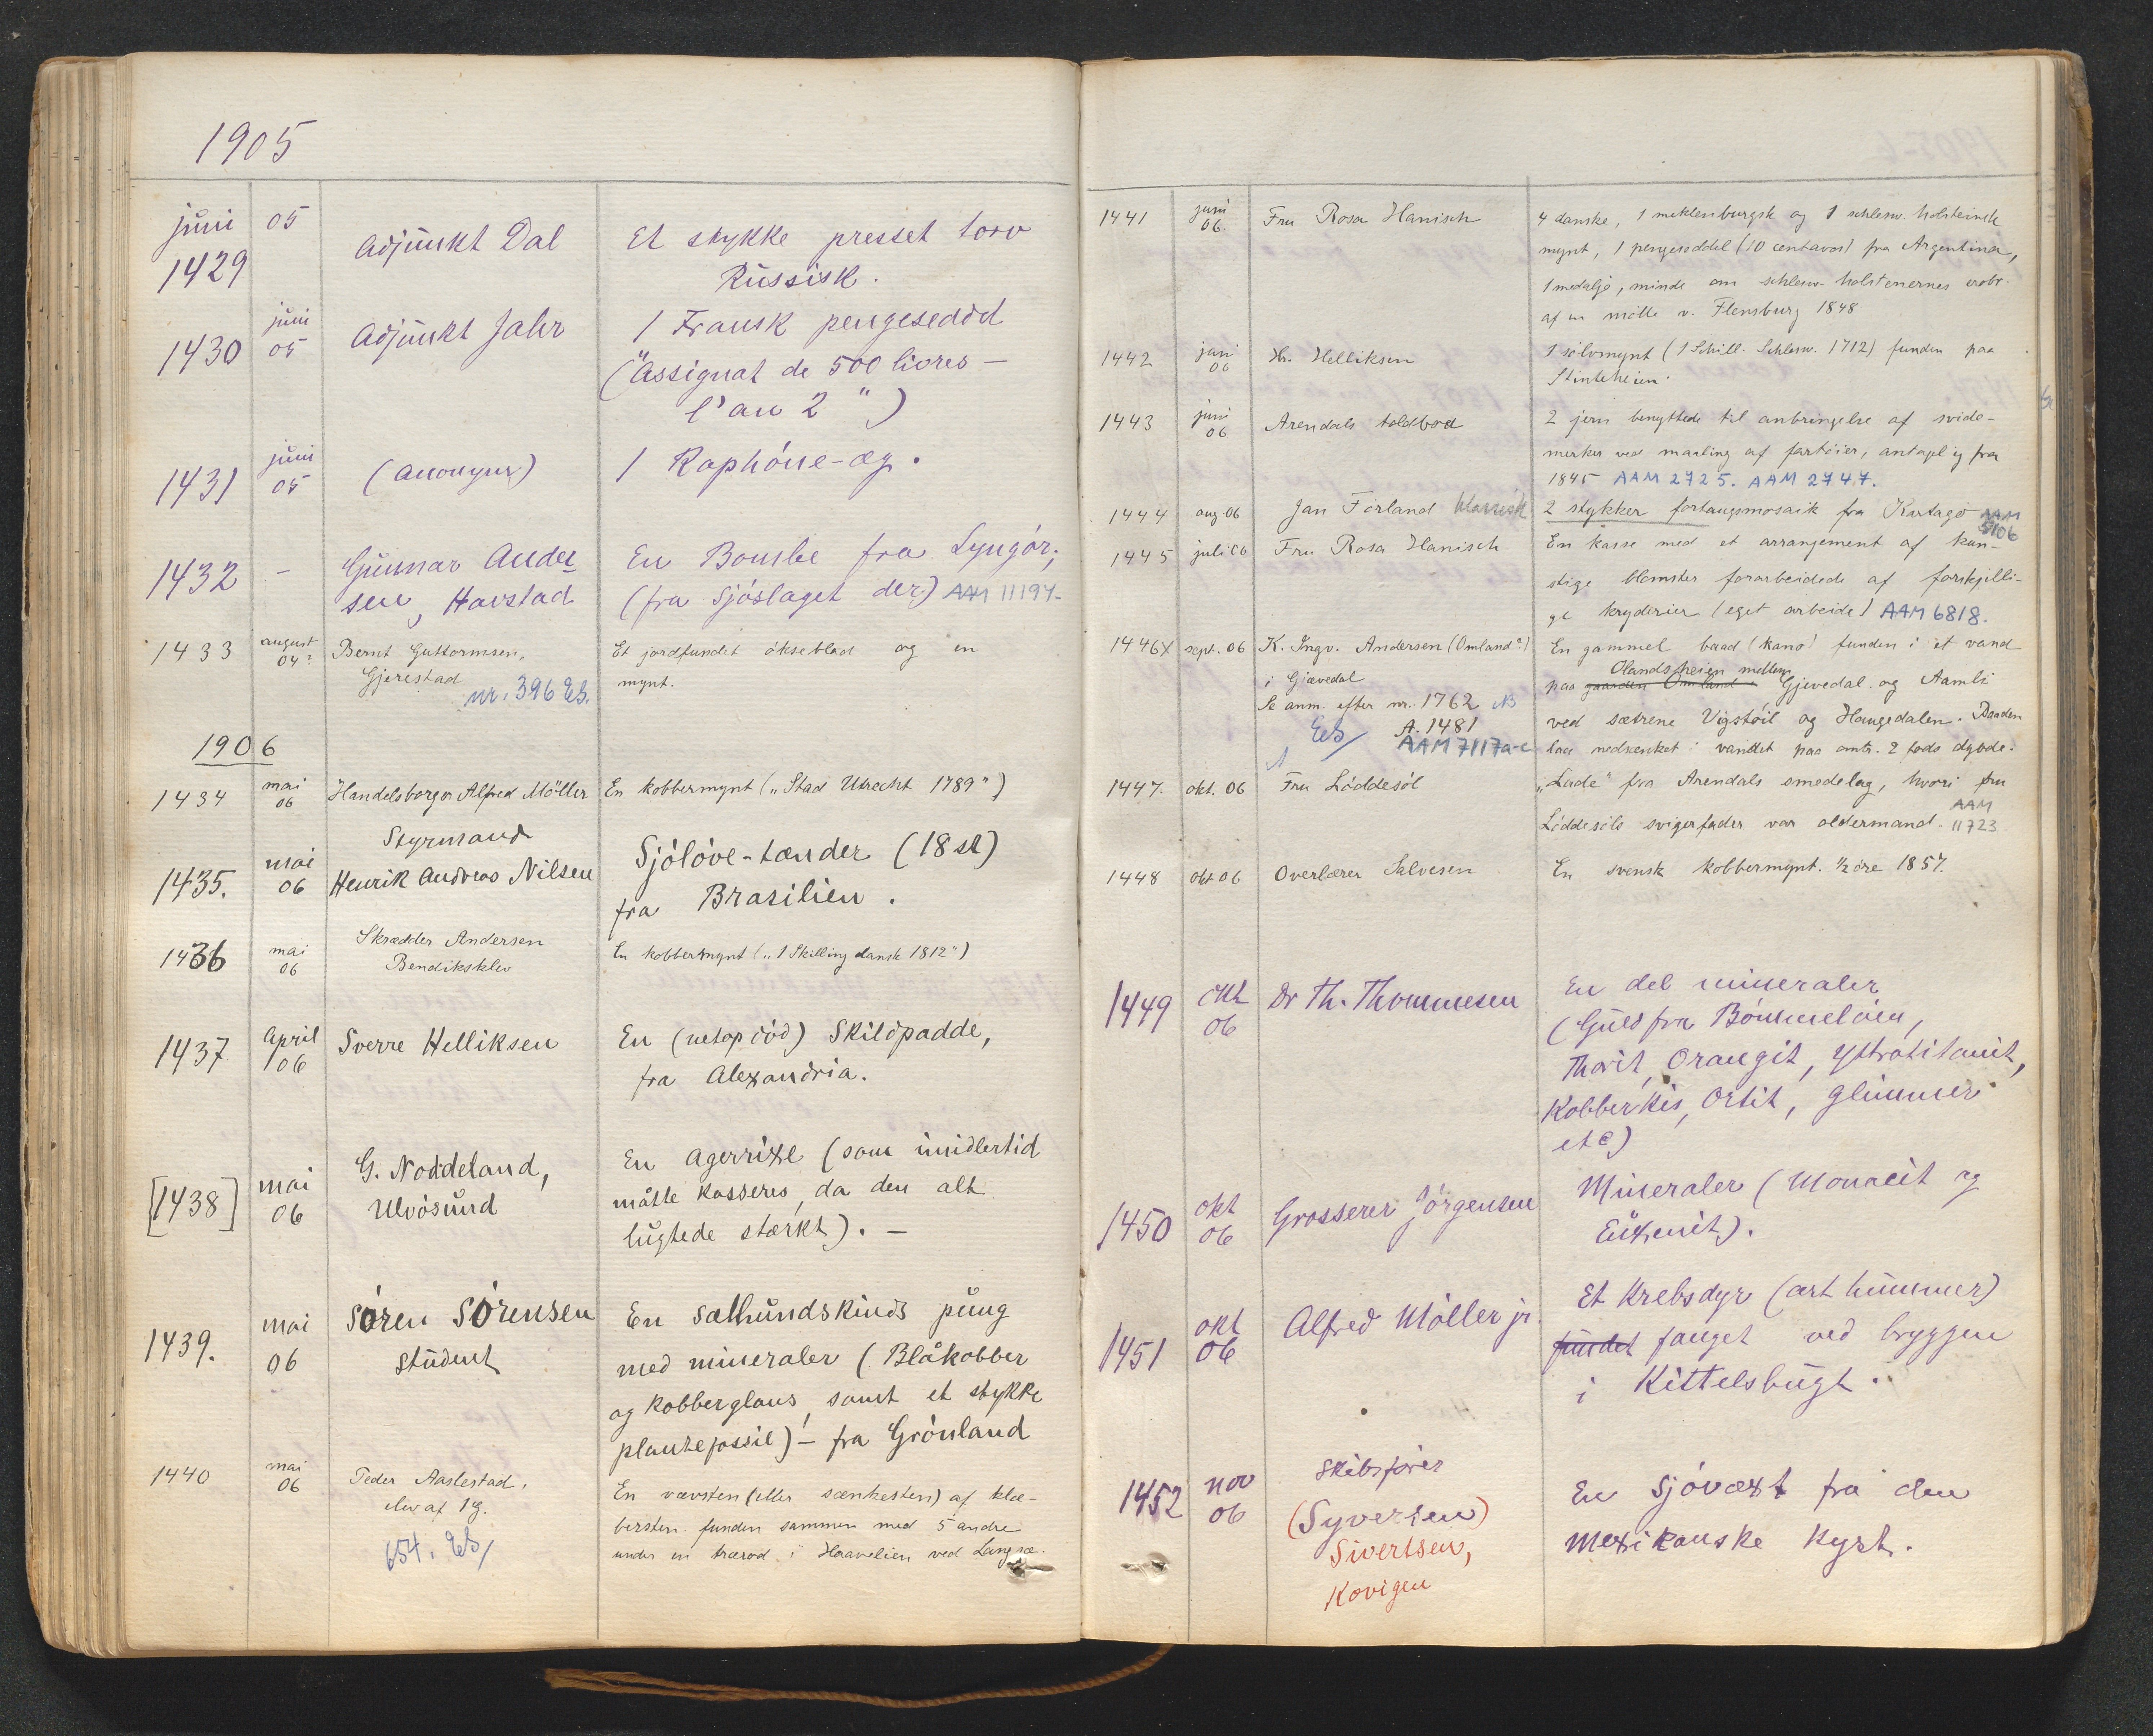 1905
juni 05
1429 Adjunkt Dal Et stykke presset torv
Russisk.
1430 juni 05 Adjunkt Jahr 1 Fransk pengeseddel
("Assignat de 500 livres –
l'an 2")
1431 juni 05 (Anonym) 1 Raphöne-æg.
1432 – Gunnar Ander En Bombe fra Lyngör;
sen, Havstad (fra Sjöslaget der) AAM 11194
1433 august 04? Bernt Guttormsen, Et jordfundet økseblad og en
Gjerestad mynt.
nr. 396 Eb.
1906
1434 mai 06 Handelsborger Alfred Möller En kobbermynt („Stad Utrecht 1789")
Styrmand
1435. mai 06 Henrik Andreas Nilsen Sjölöve-tænder (18 st)
fra Brasilien.
1436 mai 06 Skrædder Andersen En kobbermynt („1 Skilling dansk 1812")
Bendiksklev
1437 April 06 Sverre Helliksen En (netop död) Skildpadde,
fra Alexandria.
[1438] mai 06 G. Noddeland, En agerrixe (som imidlertid
Ulvösund måtte kasseres, da den alt
lugtede stærkt). –
1439. mai 06 Sören Sörensen En Sælhundskinds pung
Student med mineraler (Blåkobber
og kobberglans, samt et stykke
plantefossil) – fra Grönland
1440 mai 06 Peder Aaslestad, En vævsten (eller sænkesten) af klæ-
elev af 1g. bersten. funden sammen med 5 andre
654. Eb/ under en trærod i Haavelien ved Langsæ.
1441 juni 06. Fru Rosa Hanisch 4 danske, 1 meklenburgsk og 1 schlesw. holsteinsk
mynt, 1 pengeseddel (10 centavos) fra Argentina,
1 medalje, minde om schlesw-holstenernes erobr.
af en mölle v. Flensburg 1848
1442 juni 06 Hr. Helliksen 1 sölvmynt (1 Schill. Schlesw. 1712) funden paa
Stinteheien.
1443 juni 06 Arendals toldbod 2 jern benyttede til anbringelse af svide-
merker ved maaling af fartöier, antagelig fra
1845 AAM 2725. AAM 2747.
1444 aug 06 Jan Förland klassisk 2 stykker fortaugsmosaik fra Kartago AAM 5106
1445 juli 06 Fru Rosa Hanisch En kasse med et arrangement af kun-
stige blomster forarbeidede af forskjelli-
ge kryderier (eget arbeide) AAM 6818.
1446 X sept. 06 K. Ingv. Andersen (Omland?) En gammel baad (kano) funden i et vand
i Gjævedal paa gaarden Omland Olandsheien mellem Gjevedal og Aamli
Se anm. efter nr. 1762 NB ved sætrene Vigstöil og Haugedalen. Baaden
Eb/ A. 1481
AAM 7117a-c laa nedsenket i vandet paa omtr. 2 fods dybde.
1447. okt. 06 Fru Löddesöl „Lade" fra Arendals smedelag, hvori fru
Löddesöls svigerfader var oldermand. AAM 11723
1448 okt 06 Overlærer Salvesen En svensk kobbermynt. ½ öre 1857.
1449 okt 06 Dr Th. Thommesen En del mineraler
(Guld fra Bömmelöen,
Thorit, Orangit, Yttrotitanit,
Kobberkis, Ortit, Glimmer
etc)
1450 okt 06 Grosserer Jörgensen Mineraler (Monacit og
Euxenit).
1451 okt 06 Alfred Möller jr. Et Krebsdyr (art hummer)
fundet fanget ved bryggen
i Kittelsbugt.
1452 nov 06 Skibsförer En Sjövæxt fra den
(Syversen) mexikanske kyst.
Sivertsen,
Kovigen